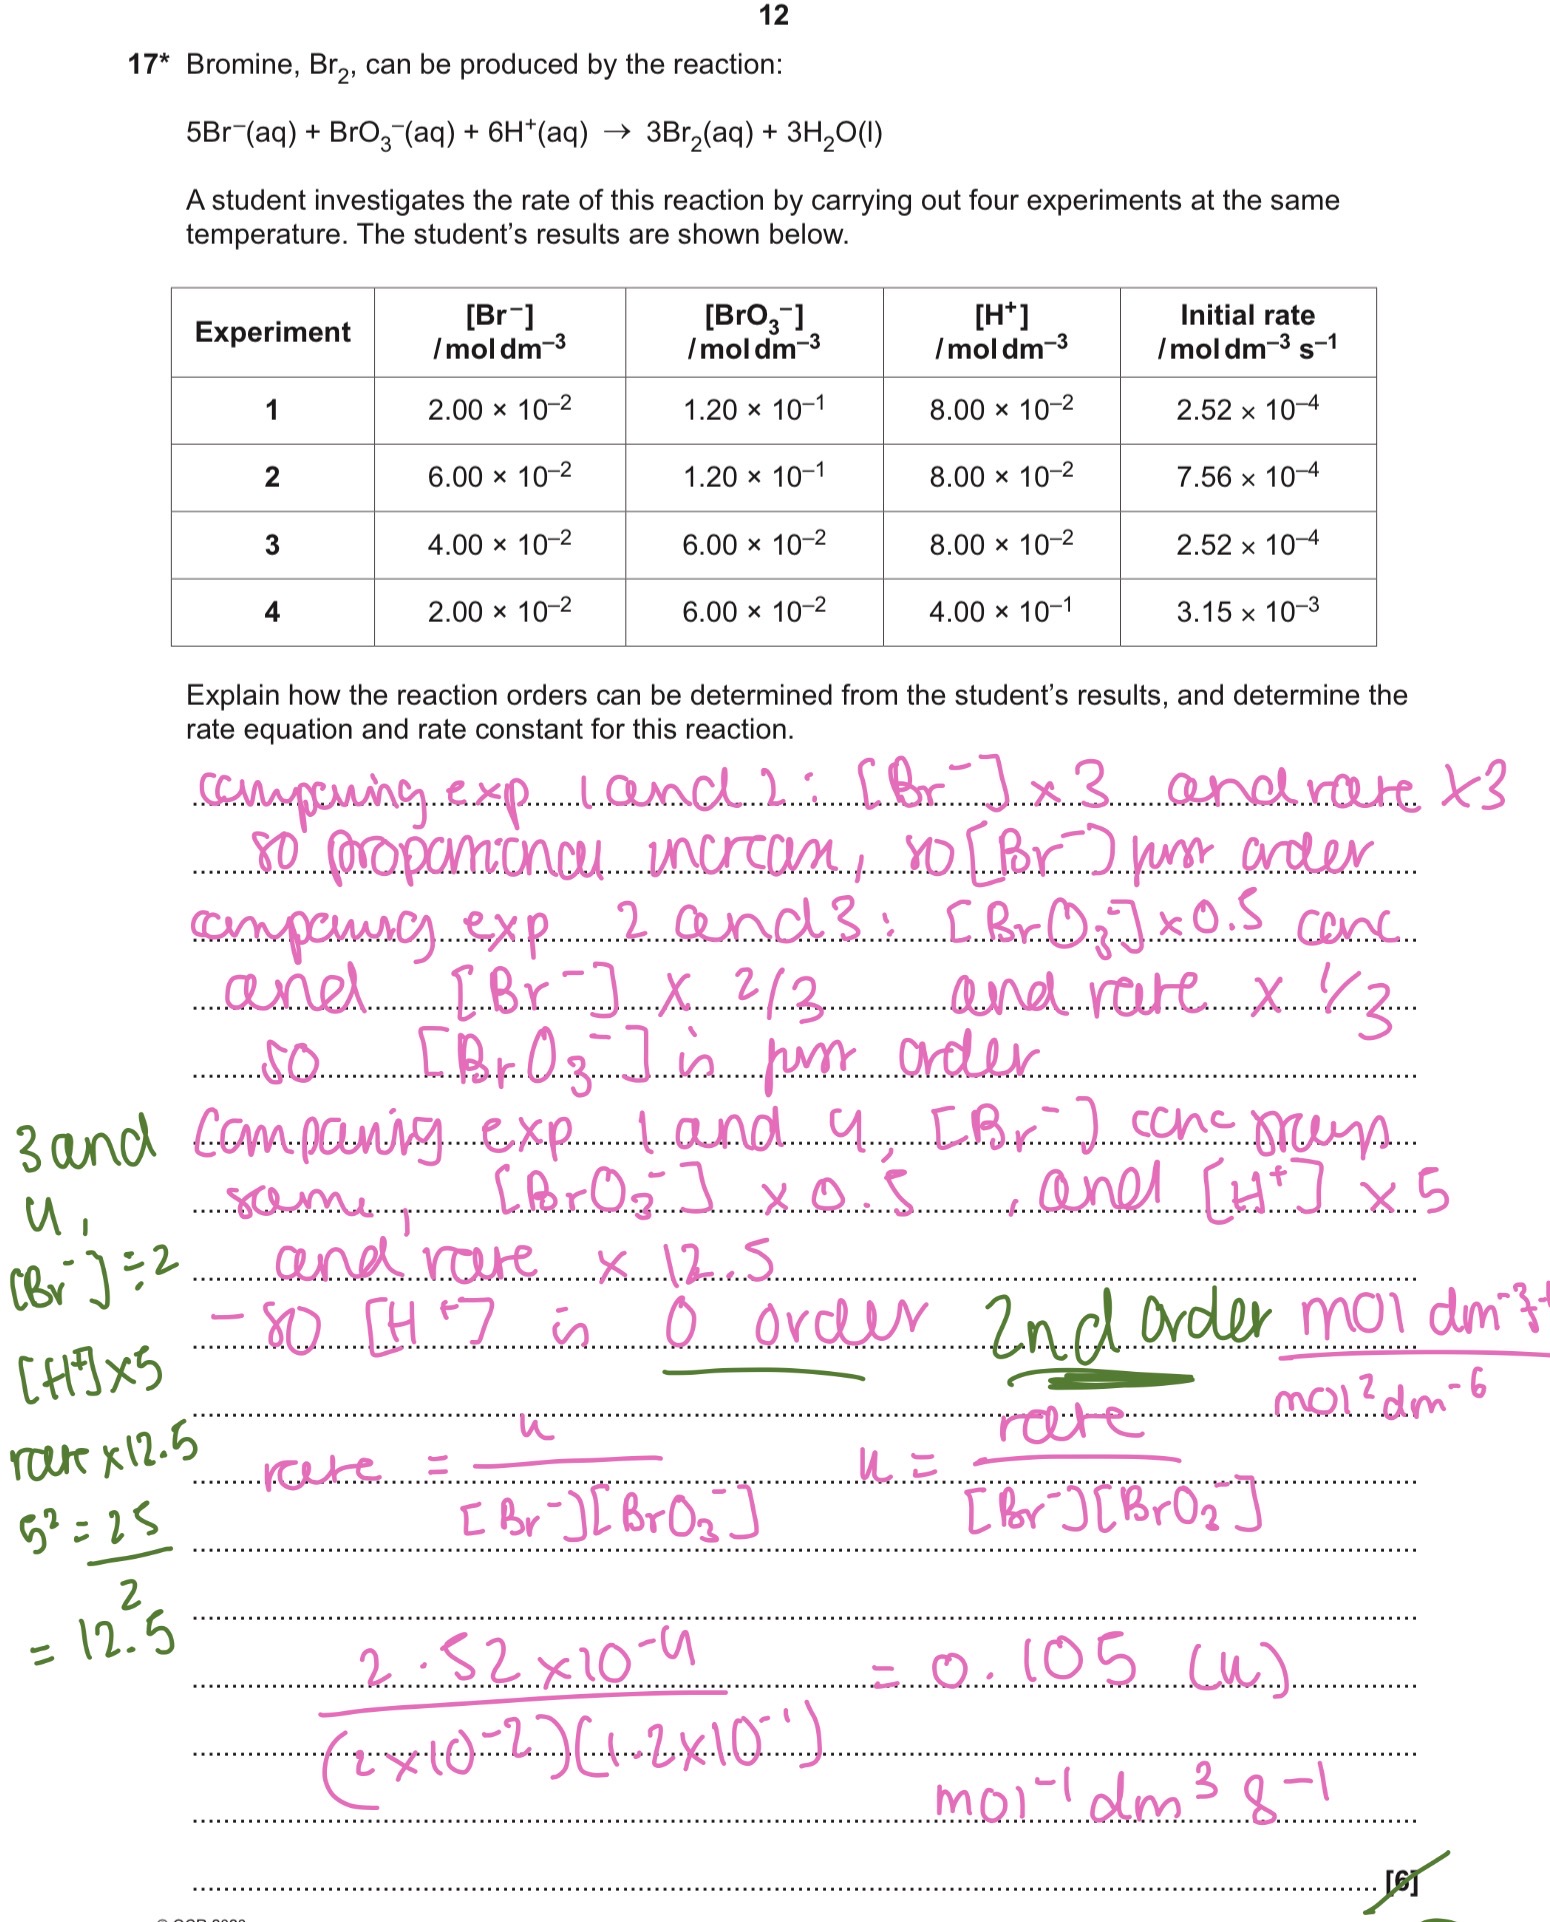 12
17* Bromine, Br₂, can be produced by the reaction:
5Br⁻(aq) + BrO₃⁻(aq) + 6H⁺(aq) → 3Br₂(aq) + 3H₂O(l)
A student investigates the rate of this reaction by carrying out four experiments at the same
temperature. The student's results are shown below.
Experiment [Br⁻] /mol dm⁻³ [BrO₃⁻] /mol dm⁻³ [H⁺] /mol dm⁻³ Initial rate /mol dm⁻³ s⁻¹
1 2.00 × 10⁻² 1.20 × 10⁻¹ 8.00 × 10⁻² 2.52 × 10⁻⁴
2 6.00 × 10⁻² 1.20 × 10⁻¹ 8.00 × 10⁻² 7.56 × 10⁻⁴
3 4.00 × 10⁻² 6.00 × 10⁻² 8.00 × 10⁻² 2.52 × 10⁻⁴
4 2.00 × 10⁻² 6.00 × 10⁻² 4.00 × 10⁻¹ 3.15 × 10⁻³
Explain how the reaction orders can be determined from the student's results, and determine the
rate equation and rate constant for this reaction.
comparing exp 1 and 2 : [Br⁻] × 3 and rate × 3
so proportional increase, so [Br⁻] first order
comparing exp 2 and 3 : [BrO₃⁻] × 0.5 conc
and [Br⁻] × 2/3 and rate × 1/3
so [BrO₃⁻] is first order
comparing exp 1 and 4, [Br⁻] conc stays
same, [BrO₃⁻] × 0.5, and [H⁺] × 5
and rate × 12.5
- so [H⁺] is 0 order 2nd order
mol dm⁻³
mol² dm⁻⁶
3 and
4,
[Br⁻] ÷ 2
[H⁺] × 5
rate × 12.5
5² = 25
2
= 12.5
rate = k
[Br⁻][BrO₃⁻]
k = rate
[Br⁻][BrO₃⁻]
2.52 × 10⁻⁴
(2 × 10⁻²)(1.2 × 10⁻¹)
= 0.105 (k)
mol⁻¹ dm³ s⁻¹
[6]